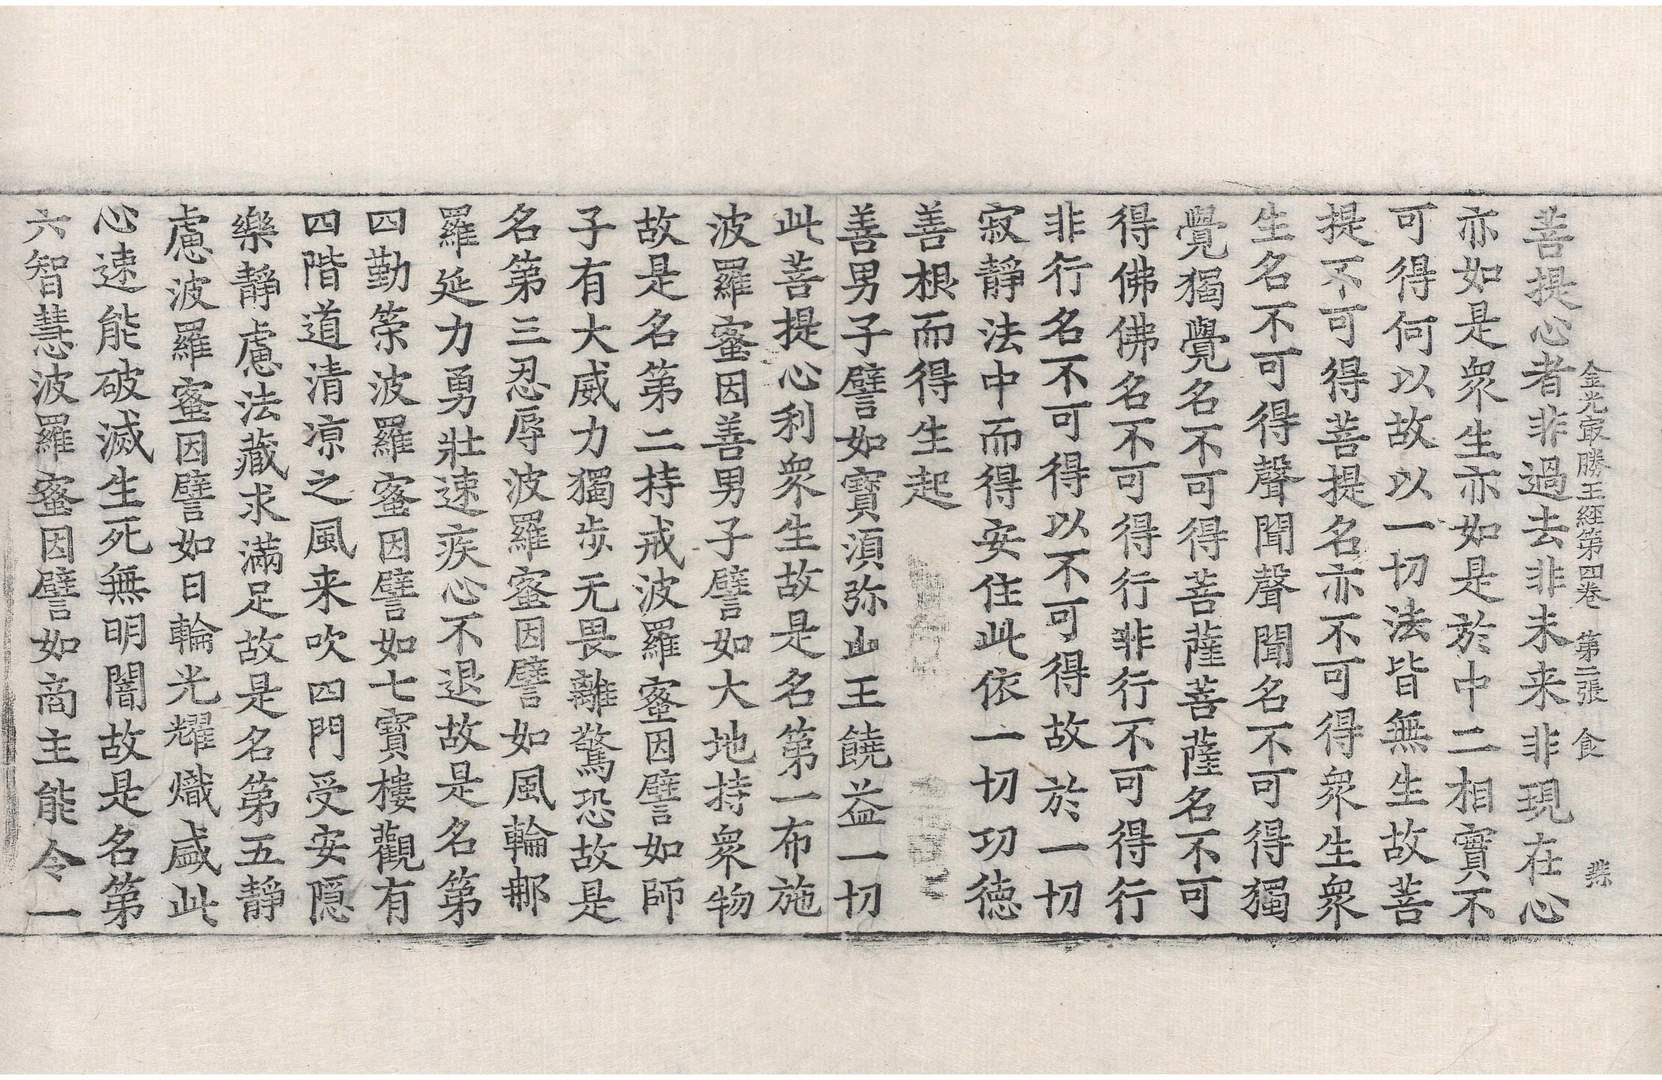 菩提心者非過去非未来非現在心
金光㝡勝王經第四卷 第二張 食
亦如是衆生亦如是於中二相實不
可得何以故以一切法皆無生故菩
提不可得菩提名亦不可得衆生衆
生名不可得聲聞聲聞名不可得獨
覺獨覺名不可得菩薩菩薩名不可
得佛佛名不可得行非行不可得行
非行名不可得以不可得故於一切
寂靜法中而得安住此依一切功德
善根而得生起
善男子譬如寶湏弥山王饒益一切
此菩提心利衆生故是名第一布施
波羅蜜因善男子譬如大地持衆物
故是名第二持戒波羅蜜因譬如師
子有大威力獨步无畏離驚恐故是
名第三忍辱波羅蜜因譬如風輪那
羅延力勇壯速疾心不退故是名第
四勤策波羅蜜因譬如七寶樓觀有
四階道清凉之風来吹四門受安隱
樂静慮法藏求滿足故是名第五静
慮波羅蜜因譬如日輪光耀熾盛此
心速能破滅生死無明闇故是名第
六智慧波羅蜜因譬如商主能令一